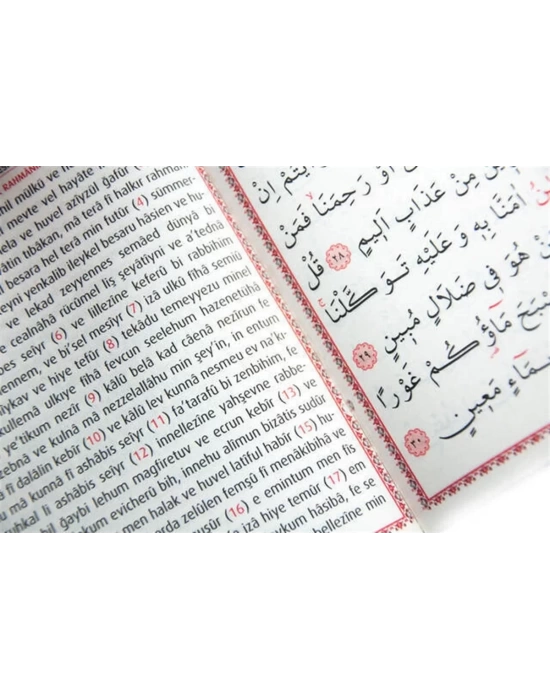 RAHMAN
mil mülkü ve
meyte vel hayâte
ve huvel azîyzül gafûr
tıbâkan, mâ terâ fî halkır rahmân
besara hel terâ min futûr (4) sümmer-
yenkalib ileykel besaru hâsien ve hu-
ve lekad zeyyennes semâed dünyâ bi
cealnâhâ rücûmel liş şeyâtîyni ve a'tednâ
seîyr (6) ve lillezîne keferû bi rabbihim
ve bi'sel mesîyr (7) izâ ulkû fîhâ semiû
ve hiye tefûr (8) tekâdu temeyyezu minel
küllemâ ulkıye fîhâ fevcun seelehum hazenetühâ
ye'tikum nezîr (9) kâlû belâ kad câenâ nezîrun fe
ve kulnâ mâ nezzelallâhu min şey'in, in entum
fî dalâlin kebîr (10) ve kâlû lev kunnâ nesmeu ev na'k-
mâ kunnâ fî ashâbis seîyr (11) fa'tarafû bi zenbihim, fe
li ashâbis seîyr (12) innellezîne yahşevne rabbe-
ğaybi lehum magfiretuv ve ecrun kebîr (13) ve
evicherû bih, innehu alîmun bizâtis sudûr
men halak ve huvel latîful habîr (15) hu-
zelûlen femşû fî menâkibihâ ve
(16) e emintum men fis
izâ hiye temûr (17) em
hâsibâ, fe se
bellezîne min
اِنْ
اَوْ رَحِمَنَا فَمَنْ
مِنْ عَذَابٍ اَلِيمٍ ٢٨ قُلْ
اٰمَنَّا بِهِ وَعَلَيْهِ تَوَكَّلْنَا
هُوَ فِي ضَلَالٍ مُبِينٍ ٢٩
مَاؤُكُمْ غَوْرًا
مَعِينٍ ٣٠